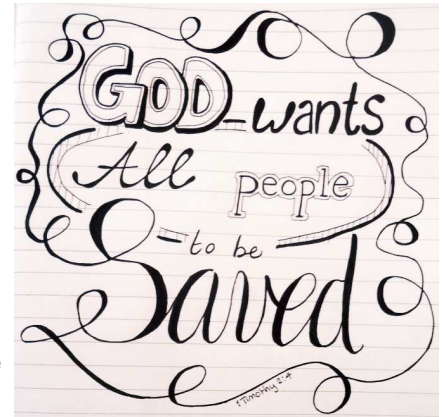 GOD wants
All people
to be
Saved
1 Timothy 2:4